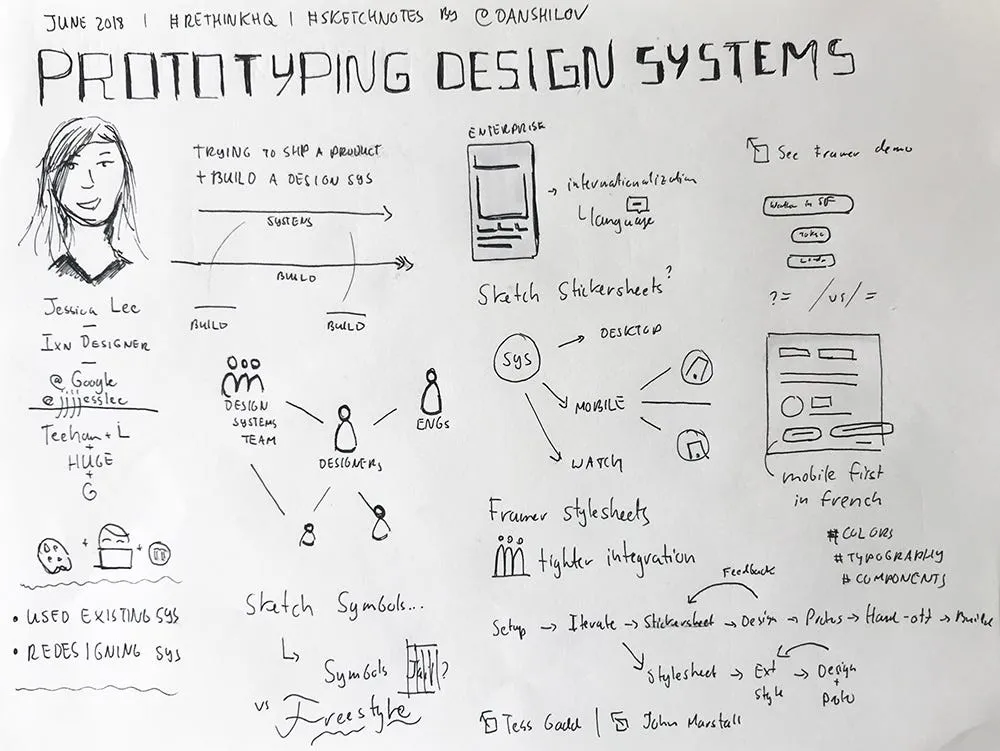 JUNE 2018 | #RETHINKHQ | #SKETCHNOTES By @DANSHILOV
PROTOTYPING DESIGN SYSTEMS
TRYING TO SHIP A PRODUCT
+ BUILD A DESIGN SYS
SYSTEMS
BUILD
BUILD
BUILD
Jessica Lee
IXN DESIGNER
@ Google
@jjjjesslee
Teehan + L
+
HUGE
+
G
• USED EXISTING SYS
• REDESIGNING SYS
DESIGN
SYSTEMS
TEAM
DESIGNERS
ENGs
Sketch Symbols...
Symbols Jail?
vs Freestyle
ENTERPRISE
internationalization
language
Sketch Stickersheets?
SYS
DESKTOP
MOBILE
WATCH
Framer stylesheets
tighter integration
Feedback
Setup → Iterate → Stickersheet → Design → Protos → Hand-off → Build
Stylesheet → Ext style → Design + Proto
Tess Gadd | John Marstall
See Framer demo
? = / vs / =
mobile first
in french
#COLORS
#TYPOGRAPHY
#COMPONENTS